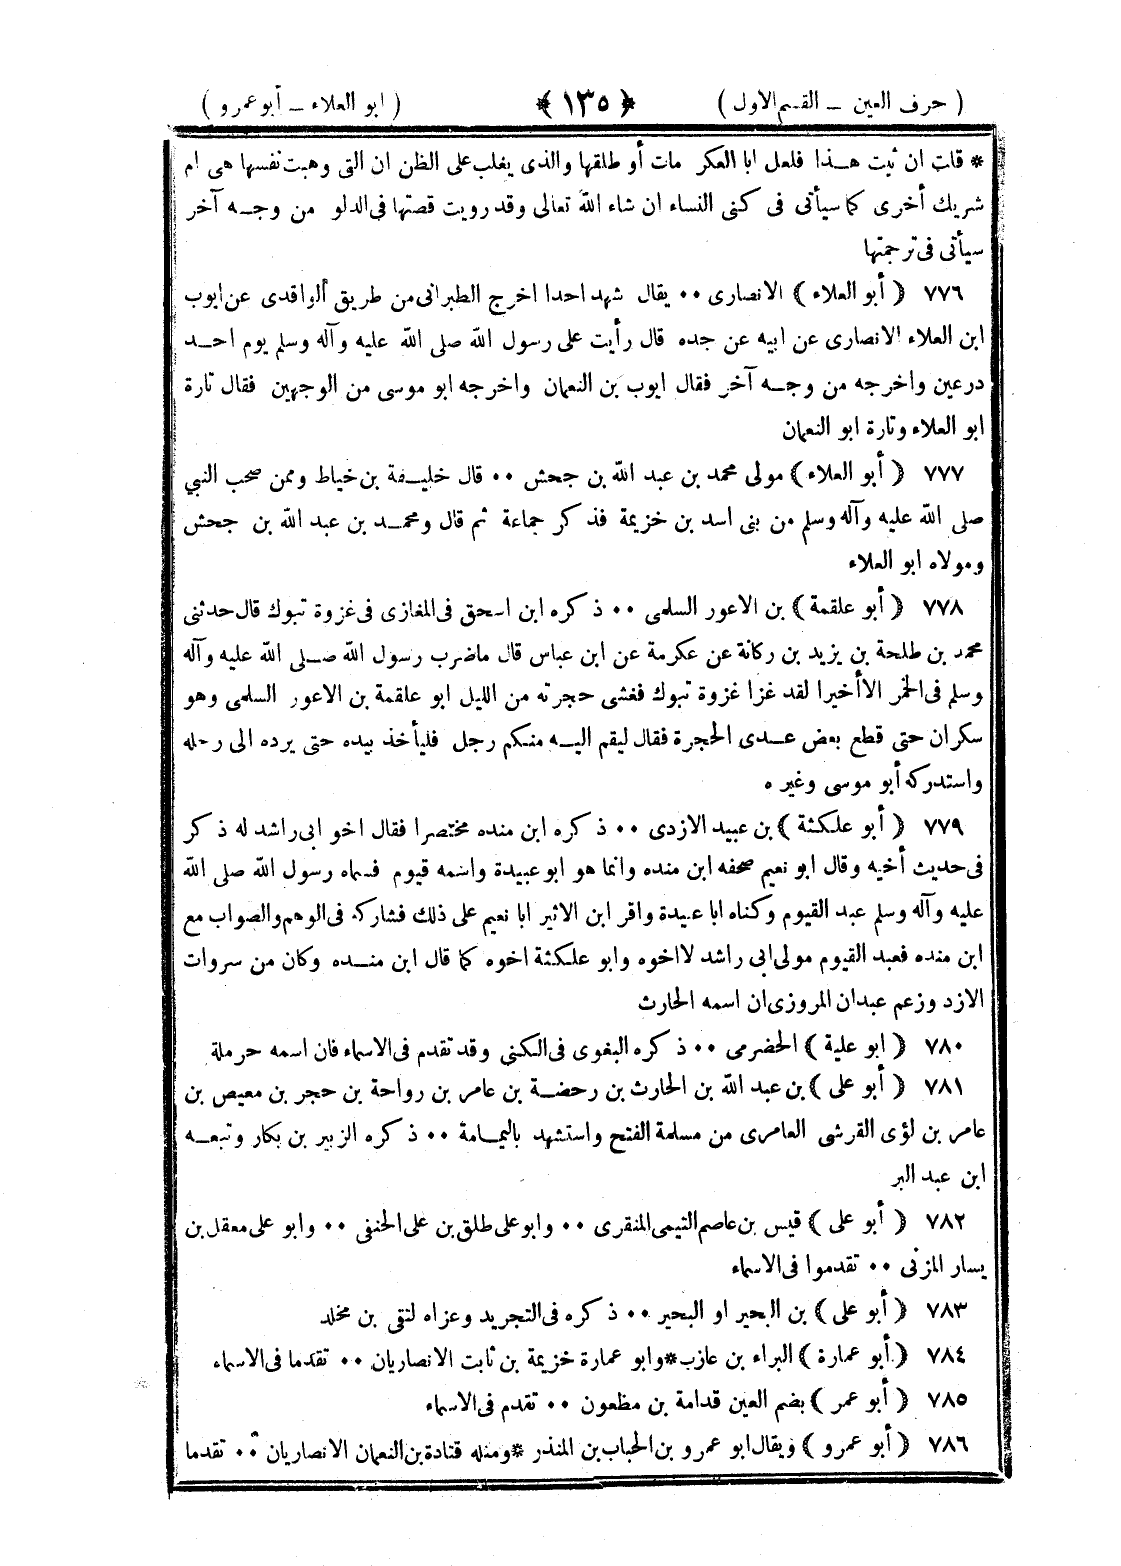 ( حرف العين ــ القسم الاول ) ﴿ ١٣٥ ﴾ ( ابو العلاء ــ أبو عمرو )
* قلت ان ثبت هذا فلعل ابا العكر مات أو طلقها والذى يغلب على الظن ان التى وهبت نفسها هى ام
شريك أخرى كما سيأتى فى كنى النساء ان شاء الله تعالى وقد رويت قصتها فى الدلو من وجه آخر
سيأتى فى ترجمتها
٧٧٦ ﴿ أبو العلاء ﴾ الانصارى ٠٠ يقال شهد احدا اخرج الطبرانى من طريق الواقدى عن ايوب
ابن العلاء الانصارى عن ابيه عن جده قال رأيت على رسول الله صلى الله عليه وآله وسلم يوم احد
درعين واخرجه من وجه آخر فقال ايوب بن النعمان واخرجه ابو موسى من الوجهين فقال تارة
ابو العلاء وتارة ابو النعمان
٧٧٧ ﴿ أبو العلاء ﴾ مولى محمد بن عبد الله بن جحش ٠٠ قال خليفة بن خياط وممن صحب النبي
صلى الله عليه وآله وسلم من بنى اسد بن خزيمة فذكر جماعة ثم قال ومحمد بن عبد الله بن جحش
ومولاه ابو العلاء
٧٧٨ ﴿ أبو علقمة ﴾ بن الاعور السلمى ٠٠ ذكره ابن اسحق فى المغازى فى غزوة تبوك قال حدثنى
محمد بن طلحة بن يزيد بن ركانة عن عكرمة عن ابن عباس قال ماضرب رسول الله صلى الله عليه وآله
وسلم فى الخمر الا أخيرا لقد غزا غزوة تبوك فغشى حجرته من الليل ابو علقمة بن الاعور السلمى وهو
سكران حتى قطع بعض عدى الحجرة فقال ليقم اليه منكم رجل فليأخذ بيده حتى يرده الى رحله
واستدركه أبو موسى وغيره
٧٧٩ ﴿ أبو علكثة ﴾ بن عبيد الازدى ٠٠ ذكره ابن منده مختصرا فقال اخو ابى راشد له ذكر
فى حديث أخيه وقال ابو نعيم صحفه ابن منده وانما هو ابو عبيدة واسمه قيوم فسماه رسول الله صلى الله
عليه وآله وسلم عبد القيوم وكناه ابا عبيدة واقر ابن الاثير ابا نعيم على ذلك فشاركه فى الوهم والصواب مع
ابن منده فعبد القيوم مولى ابى راشد لا اخوه وابو علكثة اخوه كما قال ابن منده وكان من سروات
الازد وزعم عبدان المروزى ان اسمه الحارث
٧٨٠ ﴿ ابو علية ﴾ الحضرمى ٠٠ ذكره البغوى فى الكنى وقد تقدم فى الاسماء فان اسمه حرملة
٧٨١ ﴿ أبو على ﴾ بن عبد الله بن الحارث بن رحضة بن عامر بن رواحة بن حجر بن معيص بن
عامر بن لؤى القرشى العامرى من مسلمة الفتح واستشهد باليمامة ٠٠ ذكره الزبير بن بكار وتبعه
ابن عبد البر
٧٨٢ ﴿ أبو على ﴾ قيس بن عاصم التيمى المنقرى ٠٠ وابو على طلق بن على الحنفى ٠٠ وابو على معقل بن
يسار المزنى ٠٠ تقدموا فى الاسماء
٧٨٣ ﴿ أبو على ﴾ بن البحير او البحير ٠٠ ذكره فى التجريد وعزاه لتقى بن مخلد
٧٨٤ ﴿ أبو عمارة ﴾ البراء بن عازب * وابو عمارة خزيمة بن ثابت الانصاريان ٠٠ تقدما فى الاسماء
٧٨٥ ﴿ أبو عمر ﴾ بضم العين قدامة بن مظعون ٠٠ تقدم فى الاسماء
٧٨٦ ﴿ أبو عمرو ﴾ ويقال ابو عمرو بن الحباب بن المنذر * ومثله قتادة بن النعمان الانصاريان ٠٠ تقدما